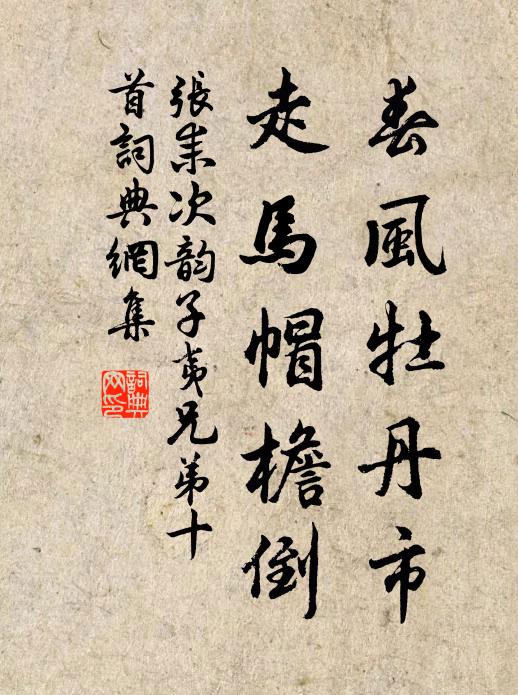 春風牡丹市
走馬帽檐倒
張耒次韵子夷兄弟十
首詞典網集
詞典
网印